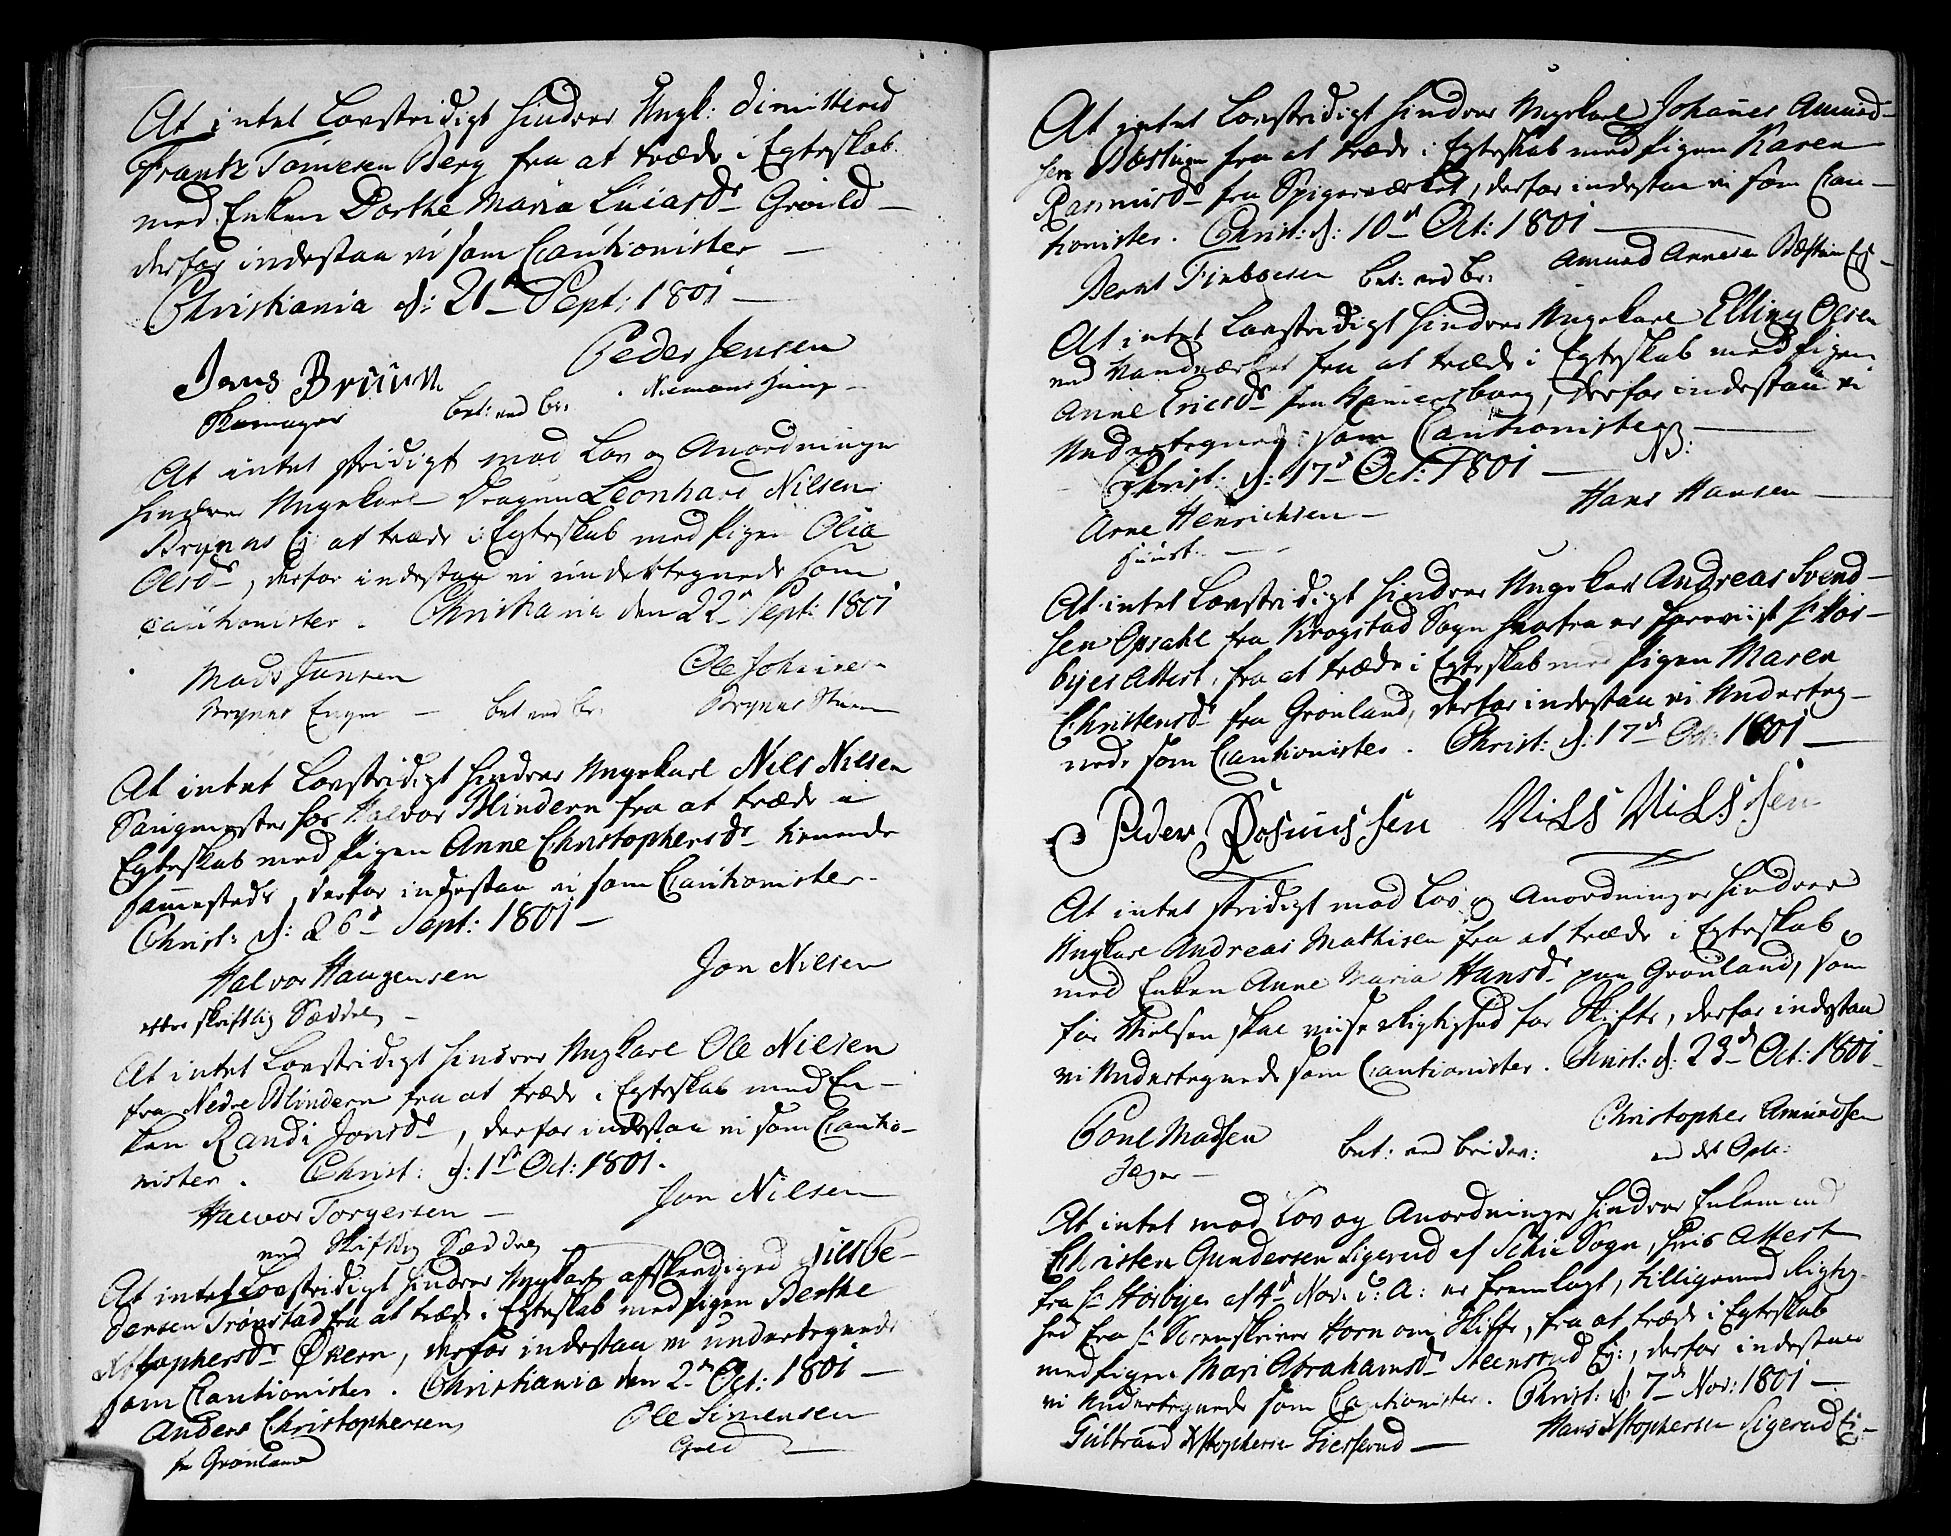 At intet Lovstridigt hindrer Ungk: dimitterd
Frantz Tømesen Berg fra at træde i Egteskab
med Enken Dorthe Maria Luiasdr
derfor indestaa vi som Cautionister
Christiania d: 21 Sept: 1801
Jens Bruun Peder Jensen
Skomager bet: ved br:
At intet stridigt mod Lov og Anordninger
hindrer Ungekarl Dragun Leonhard Nilsen
Brynas Ej: at træde i Egteskab med Pigen Olia
Olsdr, derfor indestaa vi undertegnede som
Cautionister. Christiania den 22 Sept: 1801
Mads Jansen Ole Johnsen
Brynas Enger bet ved br: Brynas
At intet Lovstridigt hindrer Ungekarl Nils Nilsen
Saugmester hos Halvor Blindern fra at træde i
Egteskab med Pigen Anne Christophersdr tienende
sammesteds, derfor indestaa vi som Cautionister.
Christ: d: 26d Sept: 1801
Halvor Haugensen Jon Nielsen
efter skriftlig Seddel
At intet Lovstridigt hindrer Ungkarl Ole Nielsen
fra Nedre Blindern fra at træde i Egteskab med En-
ken Randi Jonsdr, derfor indestaa vi som Cautio-
nister. Christ: d: 1st Oct: 1801.
Halvor Torgersen Jon Nilsen
ved Skriftlig Seddel
At intet Lovstridigt hindrer Ungkarl afskediged
densen Trønstad fra at træde i Egteskab med Pigen Berthe
Xstophersdr Økern, derfor indestaa vi undertegnede
som Cautionister. Christiania den 2 Oct: 1801
Anders Christophersen Ole Simensen
fra Grønland
At intet Lovstridigt hindrer Ungekarl Johanes Amund-
sen fra at træde i Egteskab med Pigen Karen
Rasmusdr fra Spigerværket, derfor indestaa vi som Cau-
tionister. Christ: d: 10 Oct: 1801
Bernt Finboesen bet: ved br: Amund
At intet Lovstridigt hindrer Ungekarl Elling Olsen
ved Vandværket fra at træde i Egteskab med Pigen
Anne Ericsdr fra, derfor indestaa vi
Undertegnede som Cautionister
Christ: d: 17d Oct: 1801
Arne Henrichsen Hans Hansen
At intet Lovstridigt hindrer Ungekarl Andreas Svend-
sen Opsahl fra Krogstad Sogn hvorfra er foreviist Hr Kør-
byes Attest, fra at træde i Egteskab med Pigen Maren
Christensdr fra Grønland, derfor indestaa vi Underteg-
nede som Cautionister. Christ: d: 17d Oct: 1801
Peder Rosmussen Nils Nilssen
At intet stridigt mod Lov og Anordninger hindrer
Ungkarl Andreas Mathisen fra at træde i Egteskab
med Enken Anne Maria Hansdr paa Grønland, som
for Nielsen skal viise Rigtighed for Skifte, derfor indestaa
vi Undertegnede som Cautionister. Christ: d: 23d Oct: 1801
Poul Madsen bet: ved brider: Christopher Amundsen
Jæger
At intet mod Lov og Anordninger hindrer Enkemand
Christen Gundersen Sigerud af Schie Sogn, hvis Attest
fra Hr Kørbye af Nov: d: A: er fremlagt, tilligemed Rigtig-
hed fra Hr Sorenskriver Horn om Skifte, fra at træde i Egteskab
med Pigen Mari Abrahamsdr Steensrud Ej:, derfor indestaa
vi Undertegnede som Cautionister. Christ: d: 7d Nov: 1801
Gulbrand Xstophersen Hans Xstophersen Sigerud Ej: